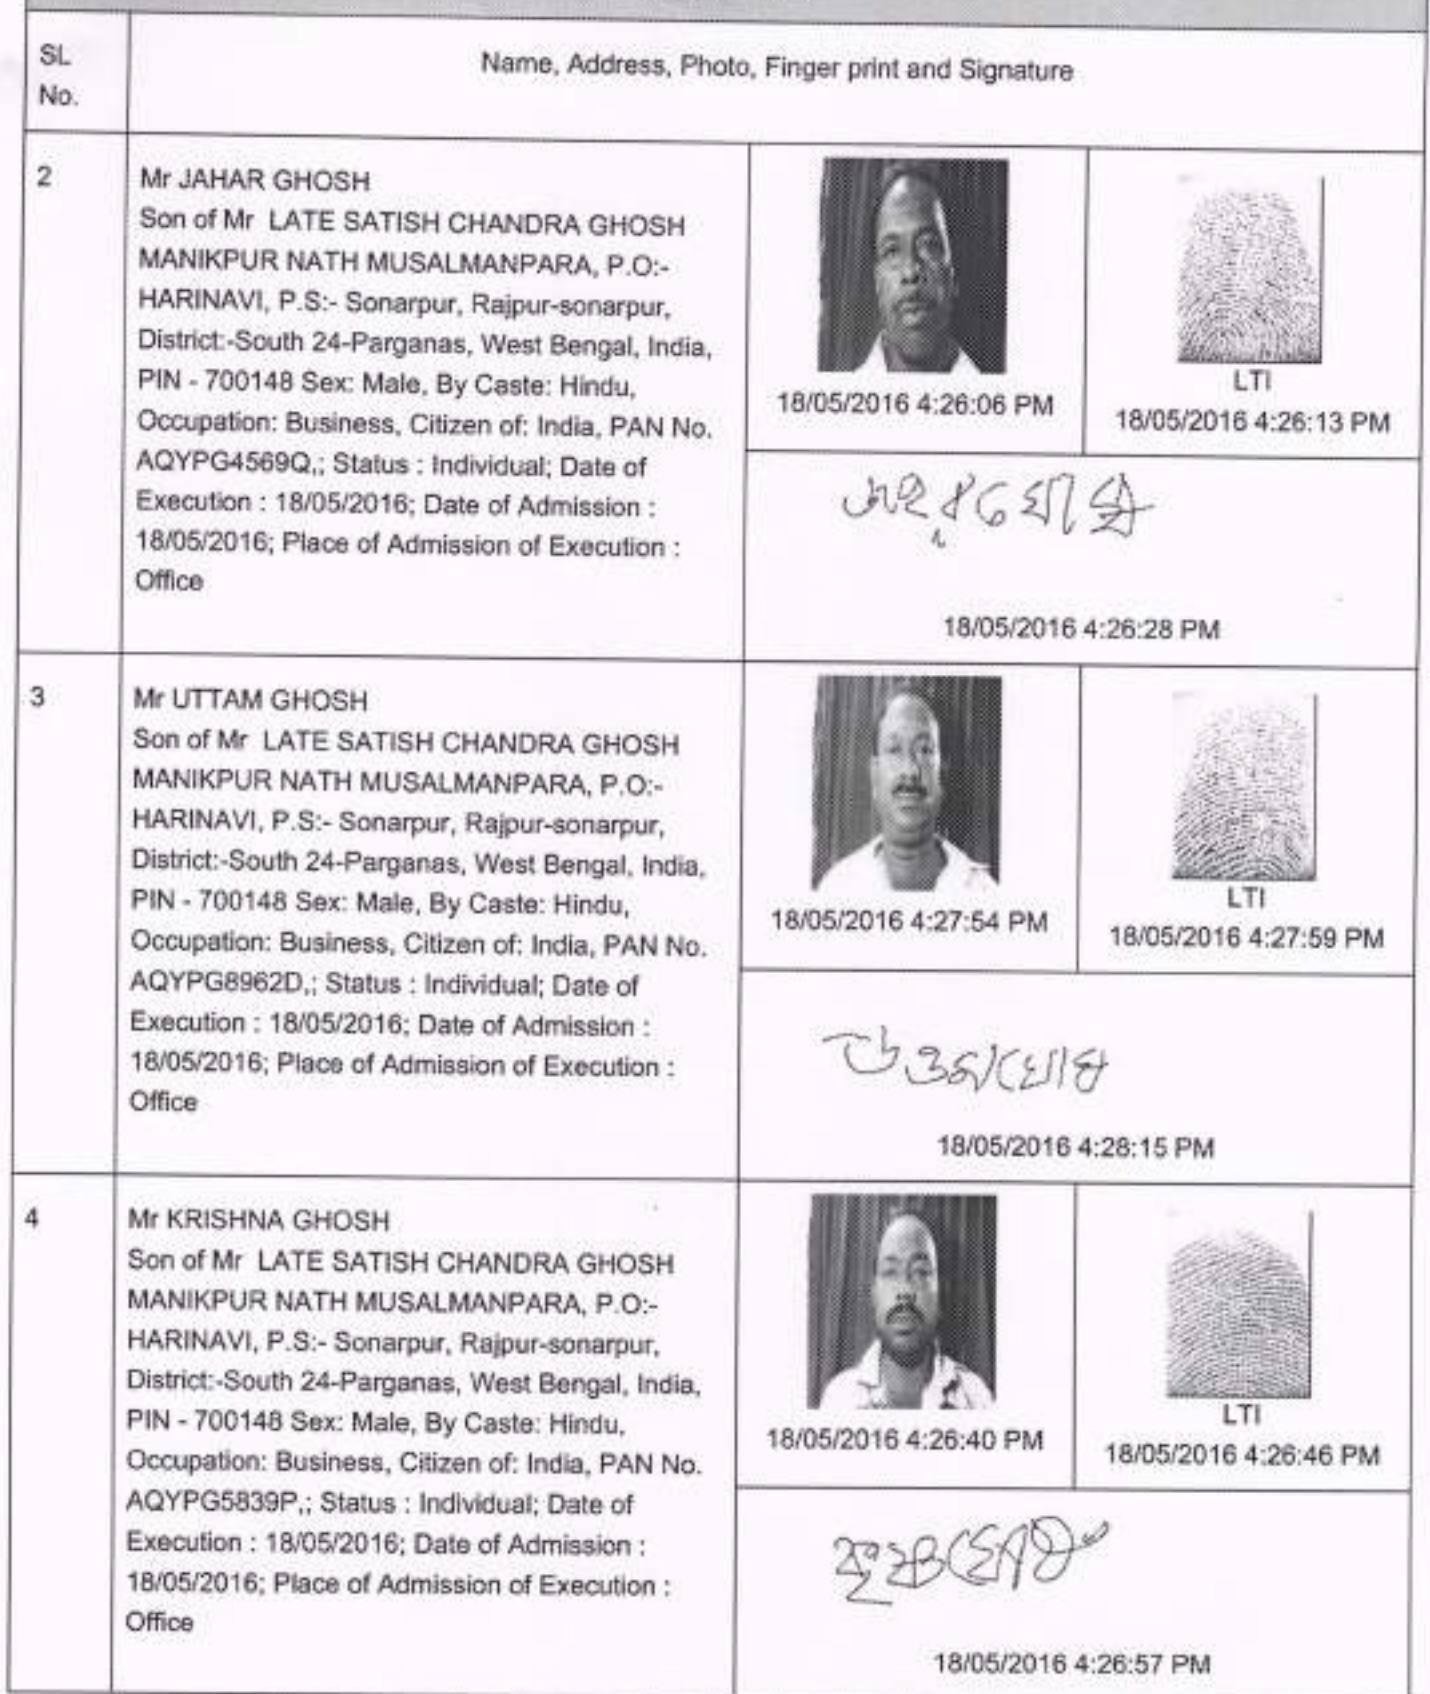 SL
No.
Name, Address, Photo, Finger print and Signature
2
Mr JAHAR GHOSH
Son of Mr LATE SATISH CHANDRA GHOSH
MANIKPUR NATH MUSALMANPARA, P.O:-
HARINAVI, P.S:- Sonarpur, Rajpur-sonarpur,
District:-South 24-Parganas, West Bengal, India,
PIN - 700148 Sex: Male, By Caste: Hindu,
Occupation: Business, Citizen of: India, PAN No.
AQYPG4569Q,; Status : Individual; Date of
Execution : 18/05/2016; Date of Admission :
18/05/2016; Place of Admission of Execution :
Office
18/05/2016 4:26:06 PM
LTI
18/05/2016 4:26:13 PM
জহর ঘোষ
18/05/2016 4:26:28 PM
3
Mr UTTAM GHOSH
Son of Mr LATE SATISH CHANDRA GHOSH
MANIKPUR NATH MUSALMANPARA, P.O:-
HARINAVI, P.S:- Sonarpur, Rajpur-sonarpur,
District:-South 24-Parganas, West Bengal, India,
PIN - 700148 Sex: Male, By Caste: Hindu,
Occupation: Business, Citizen of: India, PAN No.
AQYPG8962D,; Status : Individual; Date of
Execution : 18/05/2016; Date of Admission :
18/05/2016; Place of Admission of Execution :
Office
18/05/2016 4:27:54 PM
LTI
18/05/2016 4:27:59 PM
উত্তম ঘোষ
18/05/2016 4:28:15 PM
4
Mr KRISHNA GHOSH
Son of Mr LATE SATISH CHANDRA GHOSH
MANIKPUR NATH MUSALMANPARA, P.O:-
HARINAVI, P.S:- Sonarpur, Rajpur-sonarpur,
District:-South 24-Parganas, West Bengal, India,
PIN - 700148 Sex: Male, By Caste: Hindu,
Occupation: Business, Citizen of: India, PAN No.
AQYPG5839P,; Status : Individual; Date of
Execution : 18/05/2016; Date of Admission :
18/05/2016; Place of Admission of Execution :
Office
18/05/2016 4:26:40 PM
LTI
18/05/2016 4:26:46 PM
কৃষ্ণ ঘোষ
18/05/2016 4:26:57 PM